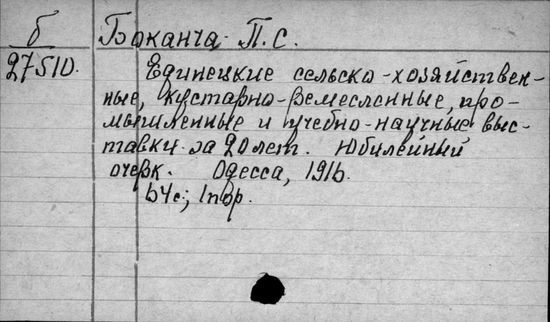 б
27510.
Боканча П. С.
Единецкие сельско-хозяйствен-
ные, кустарно-ремесленные, про-
мышленные и учебно-научные выс-
тавки за 20 лет. Юбилейный
очерк. Одесса, 1916.
64 с.; 1 пор.